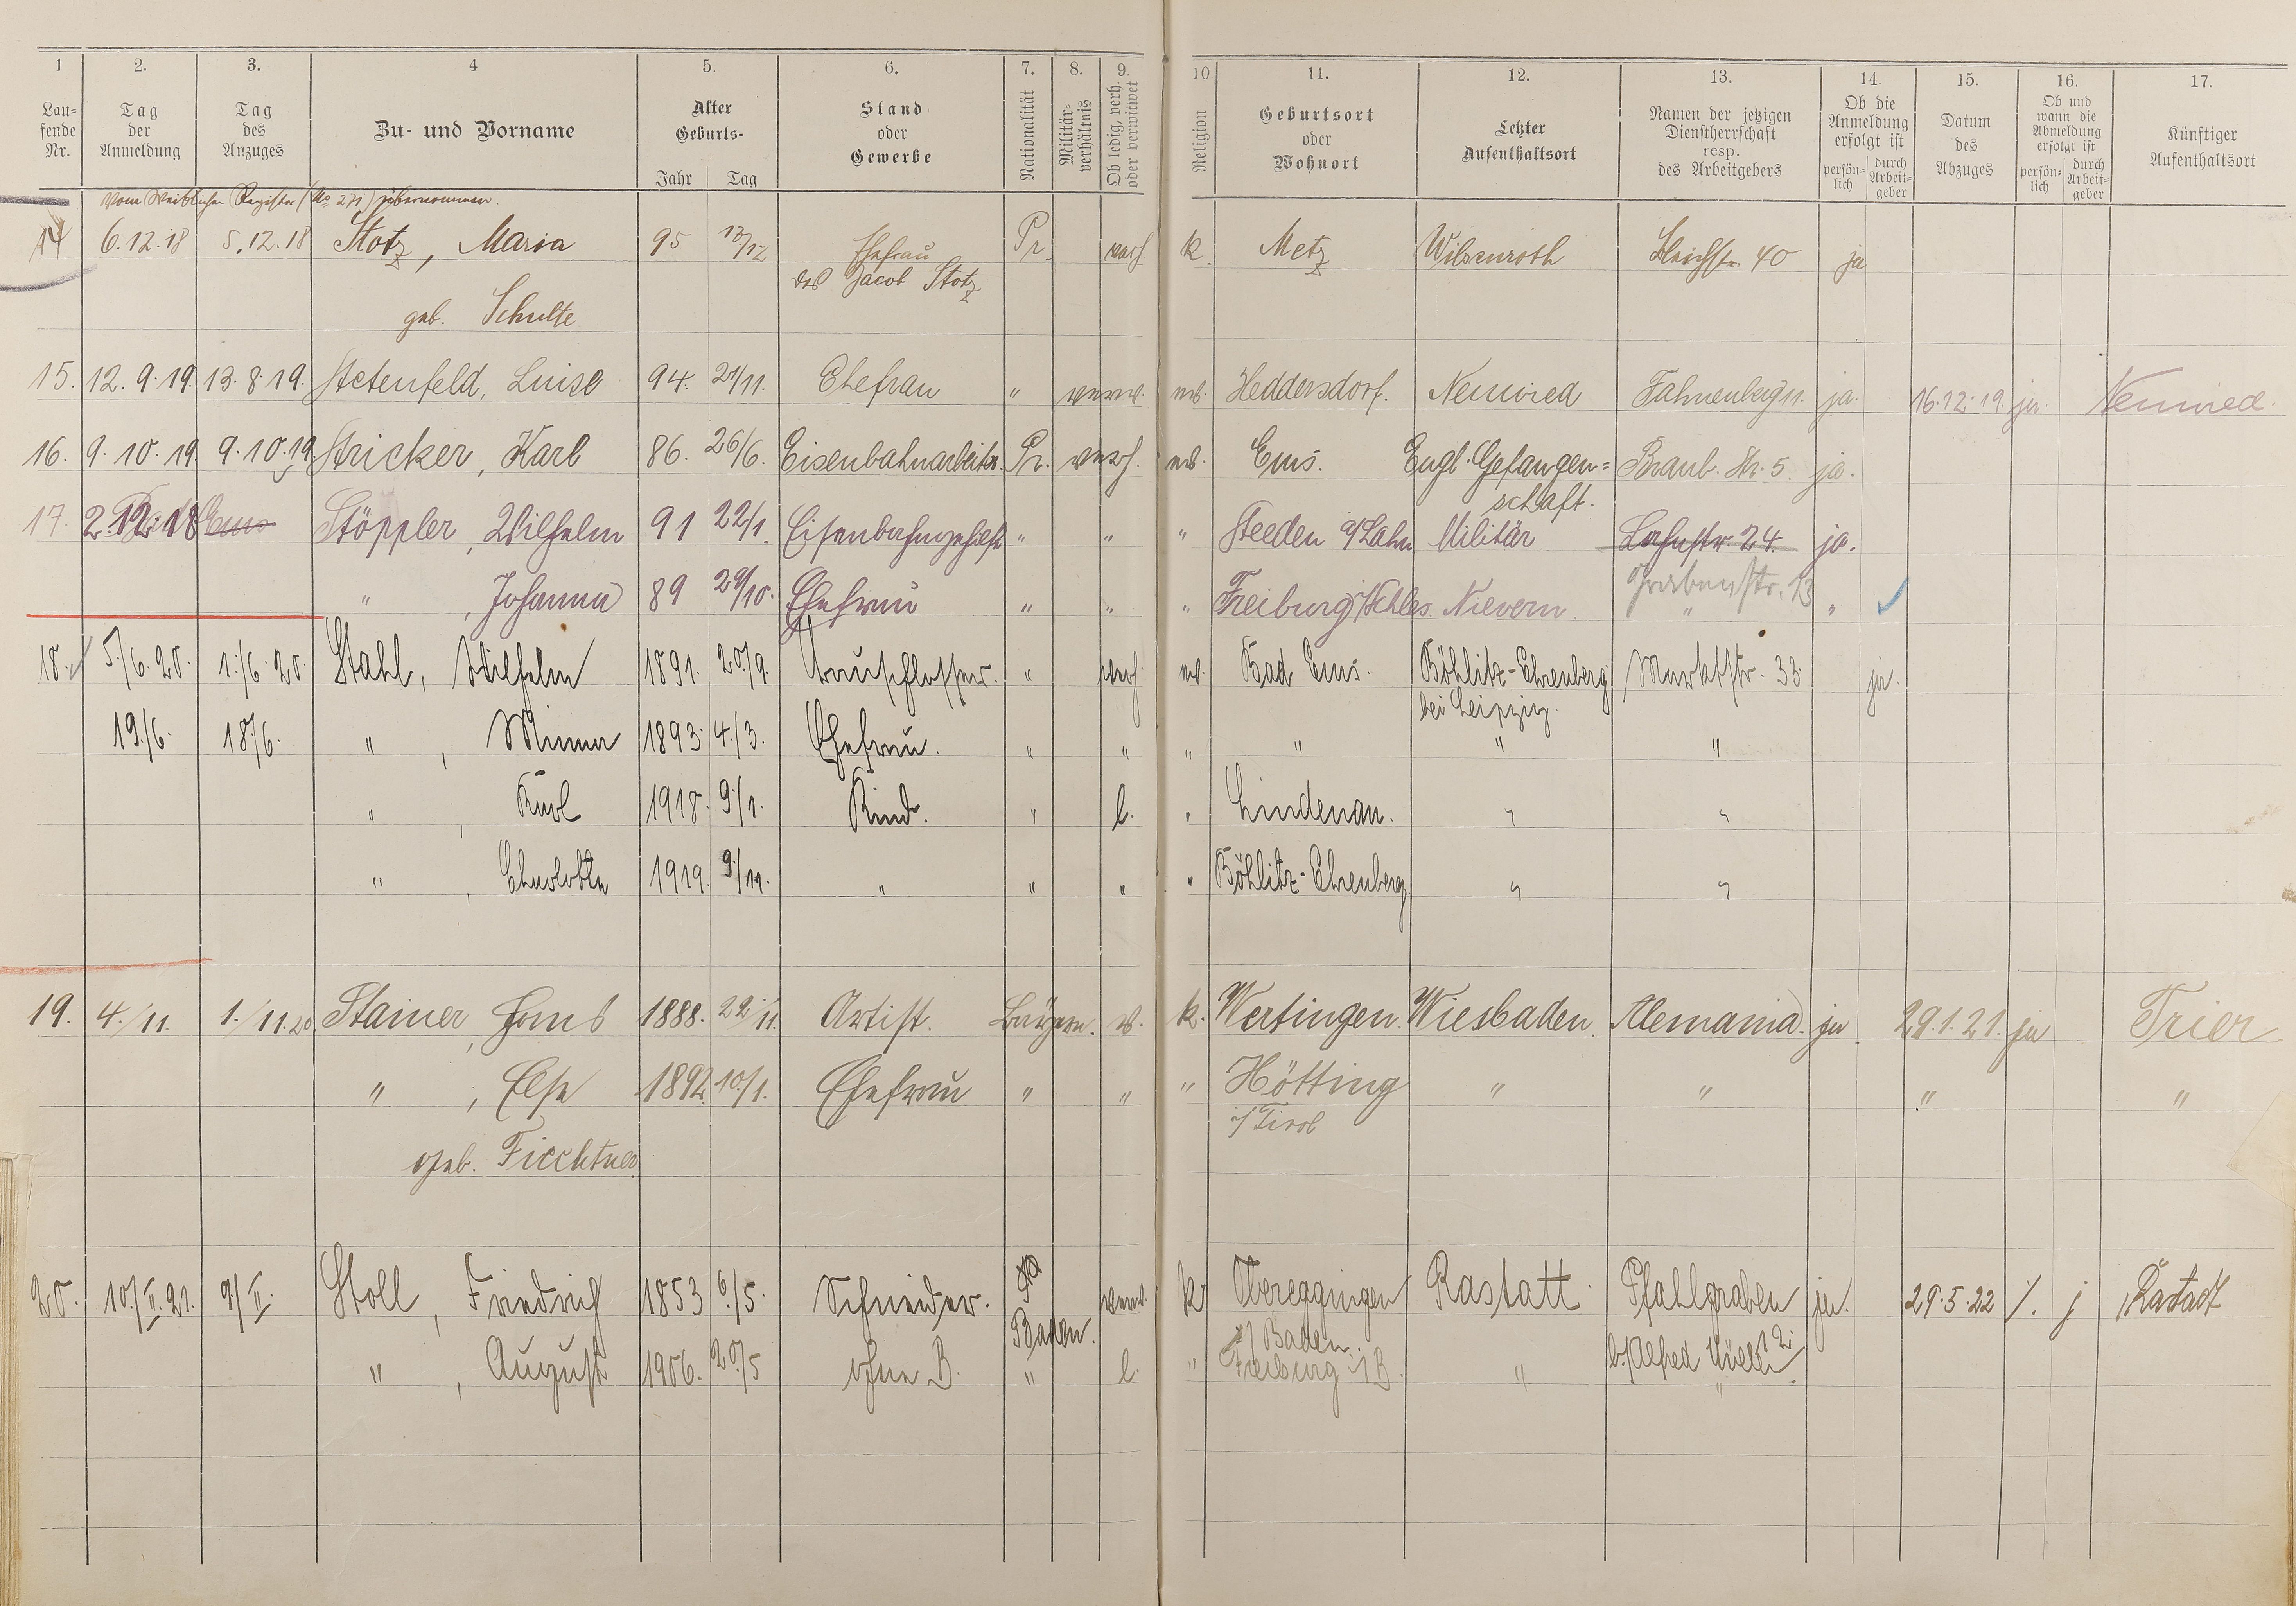 1 2. 3. 4 5. 6. 7. 8. 9. 10 11. 12. 13. 14. 15. 16. 17.
Lau-
fende
Nr.
Tag
der
Anmeldung
Tag
des
Anzuges
Zu- und Vorname
Alter
Geburts-
Jahr Tag
Stand
oder
Gewerbe
Nationalität
Militär-
verhältnis
Ob ledig, verh.
oder verwitwet
Religion
Geburtsort
oder
Wohnort
Letzter
Aufenthaltsort
Namen der jetzigen
Dienstherrschaft
resp.
des Arbeitgebers
Ob die
Anmeldung
erfolgt ist
persön-
lich
durch
Arbeit-
geber
Datum
des
Abzuges
Ob und
wann die
Abmeldung
erfolgt ist
persön-
lich
durch
Arbeit-
geber
Künftiger
Aufenthaltsort
Vom Weiblichen Register (No 271) übernommen.
14 6.12.18 5.12.18 Stotz, Maria 95 13/12 Ehefrau Pr. verh k. Metz Wilsenroth 40 ja
des Jacob Stotz
geb. Schulte
15. 12.9.19. 13.8.19. Stetenfeld, Luise 94. 21/11. Ehefrau " Heddersdorf. Neuwied Fahnenberg 11. ja. 16.12.19. ja. Neuwied.
16. 9.10.19 9.10.19. Stricker, Karl 86. 26/6. Eisenbahnarbeiter. Pr. verh. Ems. Engl. Gefangen= Braub. Str. 5. ja.
schaft.
17. 2.12.18 Ems Stöppler, Wilhelm 91 22/1. Eisenbahngehilfe " " " Steeden a/Lahn Militär Lahnstr. 24. ja.
Grabenstr. 13
" , Johanna 89 29/10. Ehefrau " " " Freiburg i/Schles. Nievern. " "
18. 5./6.20. 1./6.20. Stahl, Wilhelm 1891. 20./9. Bauschlosser. " verh. Bad Ems. Böhlitz-Ehrenberg Marktstr. 33. ja.
bei Leipzig.
19./6. 18./6. " , Minna 1893. 4./3. Ehefrau. " " " " " "
" , Karl 1918. 9./1. Kind. " l. " Lindenau. " "
" , Charlotte 1919. 9./11. " " " " Böhlitz-Ehrenberg. " "
19. 4./11. 1./11.20. Stainer, Hans 1888. 22./11. Artist. Bayern. v. k. Wertingen. Wiesbaden. Alemania. ja. 29.1.21. ja Trier.
" , Else 1892. 10./1. Ehefrau " " " Hötting " " " "
i/Tirol
geb. Fiechtner.
20. 10./II.21. 9/II. Stoll, Friedrich 1853 6./5. Schneider. Baden. verw. k. Obereggingen Rastatt. Pfahlgraben ja. 29.5.22 /. j Rastatt
i/Baden. 2
b/Alfred Müller.
" , August 1906. 20./5 ohne B. " l. " Freiburg i/B. " "